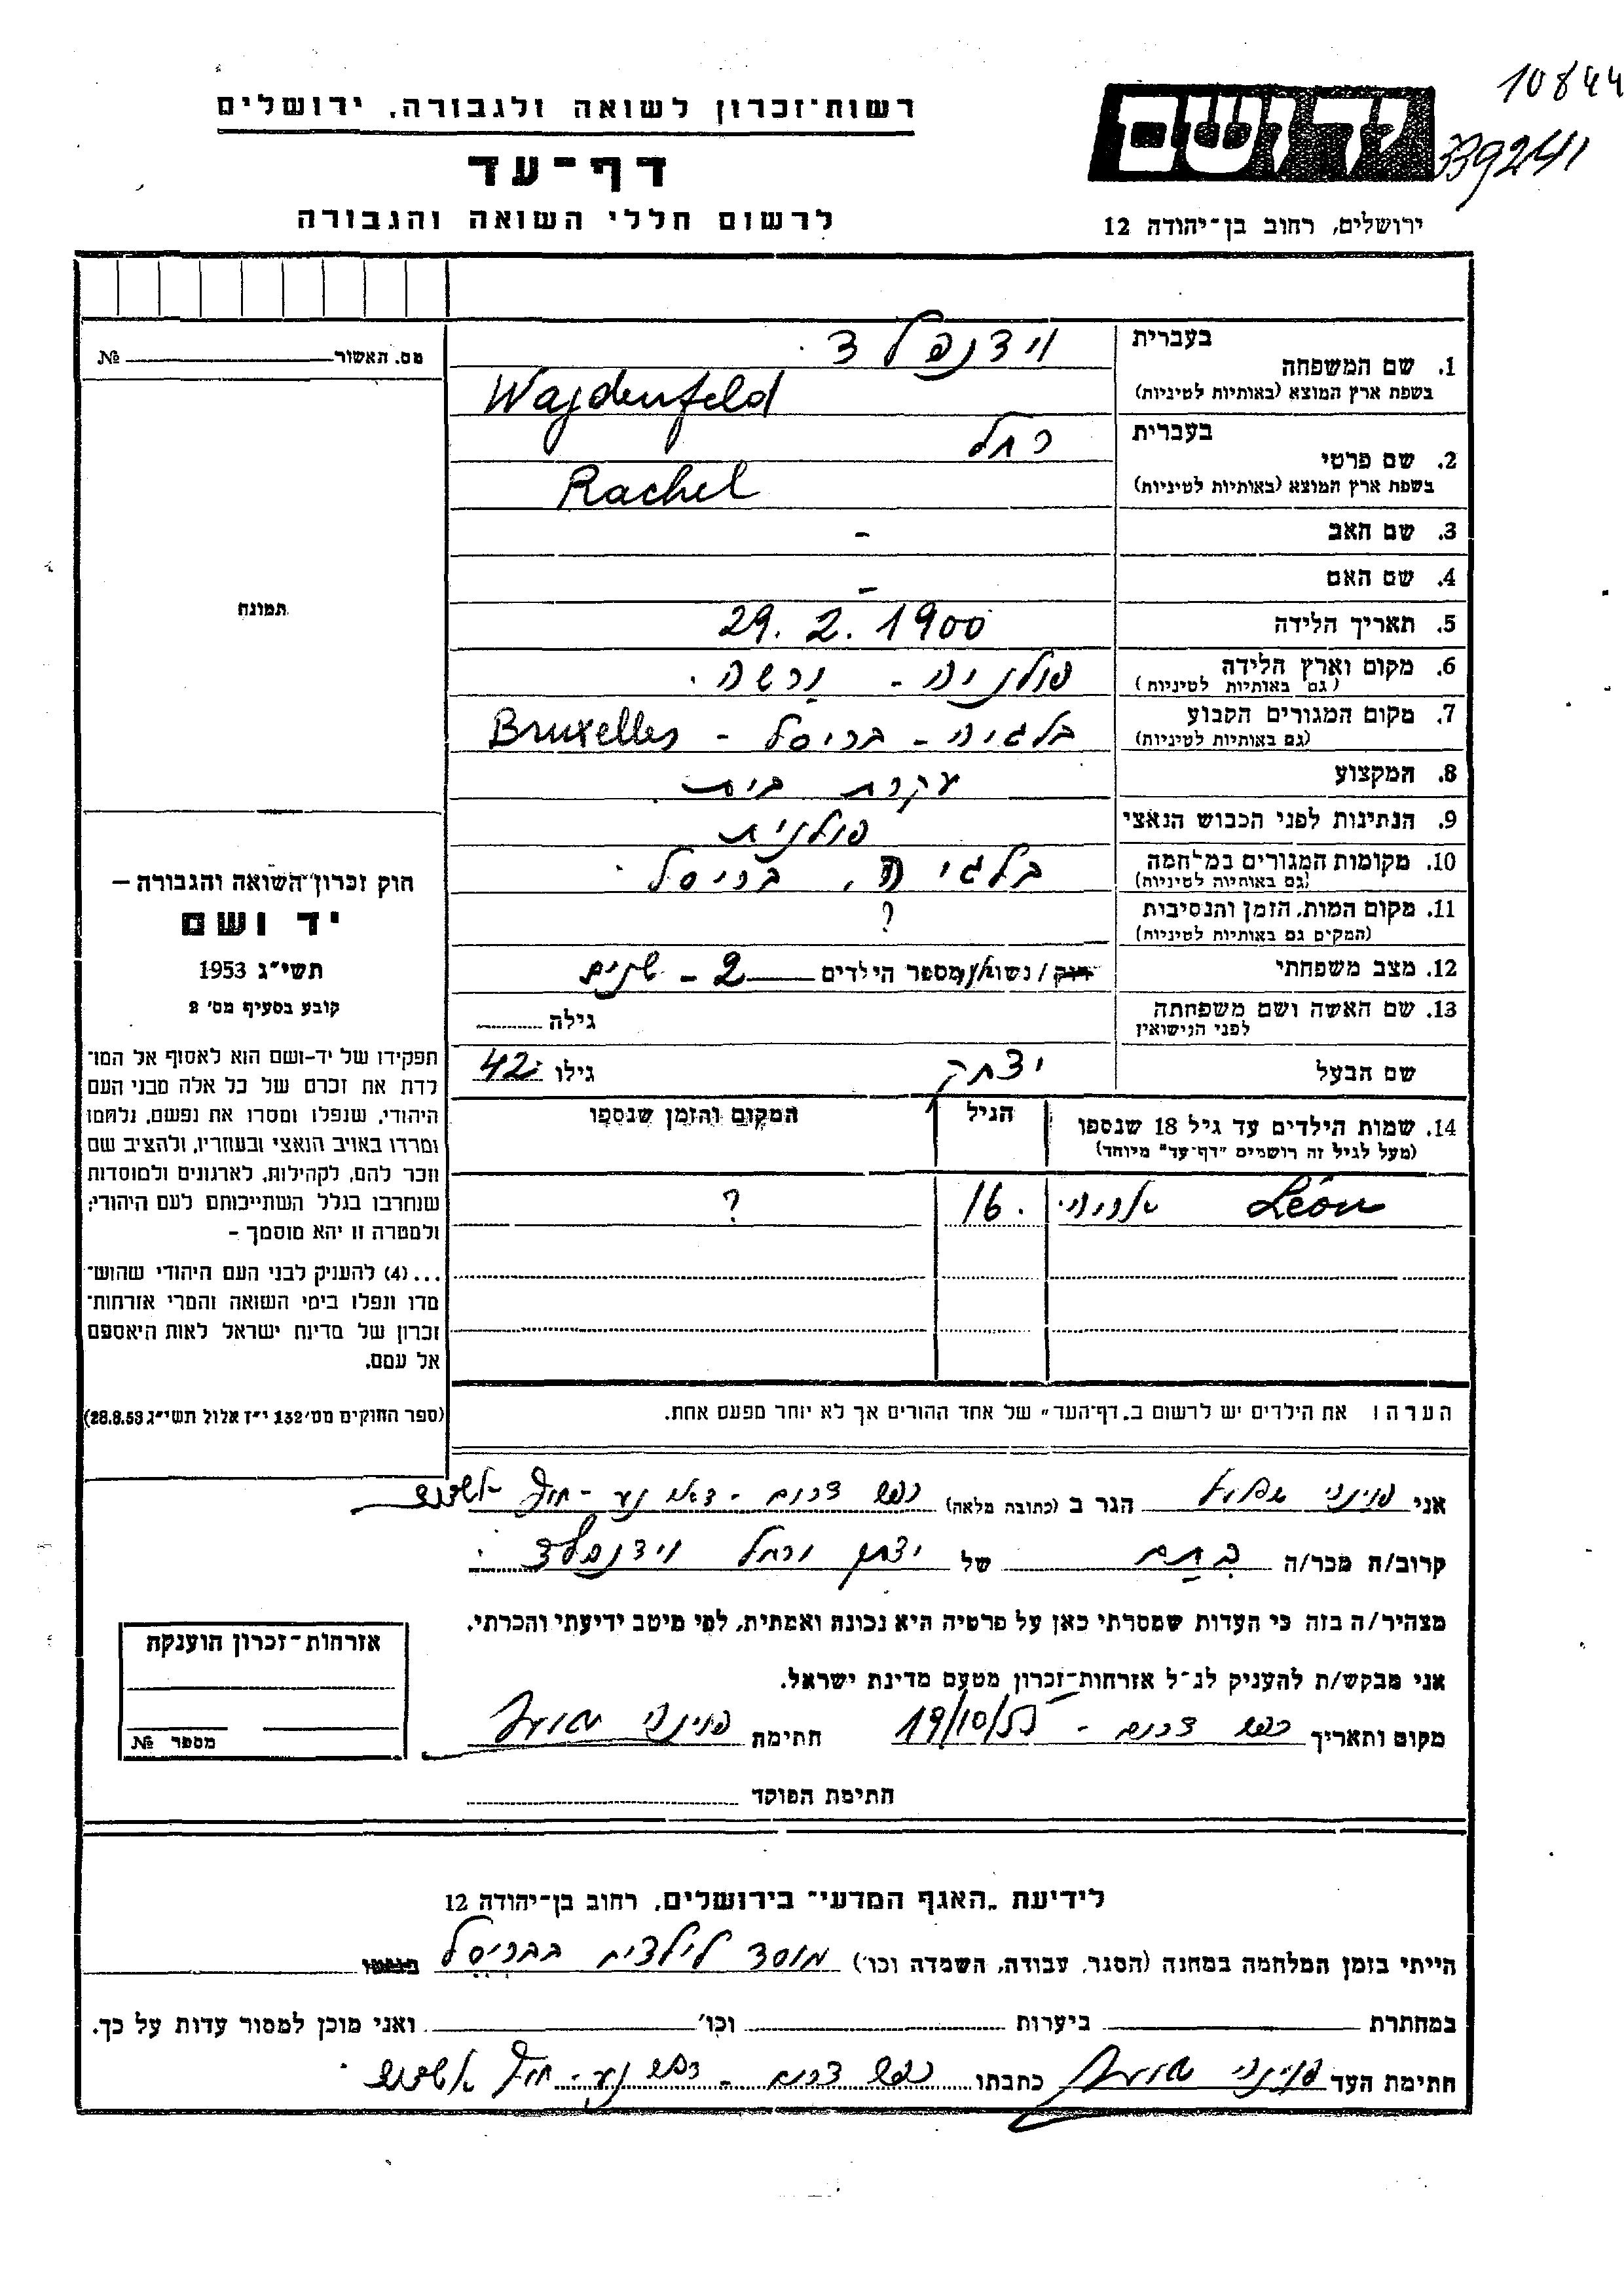 10844
339241
רשות־זכרון לשואה ולגבורה, ירושלים
דף־עד
לרשום חללי השואה והגבורה
יד ושם
ירושלים, רחוב בן־יהודה 12
מס. האשור № 
תמונה
חוק זכרון־השואה והגבורה –
יד ושם
תשי״ג 1953
קובע בסעיף מס׳ 2
תפקידו של יד-ושם הוא לאסוף אל המו־
לדת את זכרם של כל אלה מבני העם
היהודי, שנפלו ומסרו את נפשם, נלחמו
ומרדו באויב הנאצי ובעוזריו, ולהציב שם
וזכר להם, לקהילות, לארגונים ולמוסדות
שנחרבו בגלל השתייכותם לעם היהודי;
ולמטרה זו יהא מוסמך –
...(4) להעניק לבני העם היהודי שהוש־
מדו ונפלו בימי השואה והמרי אזרחות־
זכרון של מדינת ישראל לאות היאספם
אל עמם.
(ספר החוקים מס׳ 132 י״ז אלול תשי״ג 28.8.53)
בעברית וידנפלד.
1. שם המשפחה
בשפת ארץ המוצא (באותיות לטיניות) Wajdenfeld
בעברית רחל
2. שם פרטי
בשפת ארץ המוצא (באותיות לטיניות) Rachel
3. שם האב -
4. שם האם -
5. תאריך הלידה 29.2.1900
6. מקום וארץ הלידה פולניה - ורשה.
(גם באותיות לטיניות)
7. מקום המגורים הקבוע בלגיה - בריסל - Bruxelles
(גם באותיות לטיניות)
8. המקצוע עקרת בית
9. הנתינות לפני הכבוש הנאצי פולנית
10. מקומות המגורים במלחמה בלגיה, בריסל.
(גם באותיות לטיניות)
11. מקום המות, הזמן והנסיבות ?
(המקום גם באותיות לטיניות)
12. מצב משפחתי רווק / נשוי/אה מספר הילדים 2 - שנים
13. שם האשה ושם משפחתה גילה
לפני הנישואין
שם הבעל יצחק גילו 42
14. שמות הילדים עד גיל 18 שנספו הגיל המקום והזמן שנספו
(מעל לגיל זה רושמים ״דף־עד״ מיוחד)
Léon 16. ?
הערה: את הילדים יש לרשום ב״דף־העד״ של אחד ההורים אך לא יותר מפעם אחת.
אני פנינה הגר ב (כתובת מלאה) כפר דרום - דאר נע - חוף אשדוד
קרוב/ה מכר/ה בתם של יצחק ורחל וידנפלד.
מצהיר/ה בזה כי העדות שמסרתי כאן על פרטיה היא נכונה ואמתית, לפי מיטב ידיעתי והכרתי.
אני מבקש/ת להעניק לנ״ל אזרחות־זכרון מטעם מדינת ישראל.
מקום ותאריך כפר דרום - 19/10/55 חתימת פנינה
חתימת הפוקד
אזרחות־זכרון הוענקה
מספר №
לידיעת ״האגף המדעי״ בירושלים, רחוב בן־יהודה 12
הייתי בזמן המלחמה במחנה (הסגר, עבודה, השמדה וכו׳) מוסד לילדים בבריסל
במחתרת ביערות וכו׳ ואני מוכן למסור עדות על כך.
חתימת העד פנינה כתבתו כפר דרום - דאר נע - חוף אשדוד.